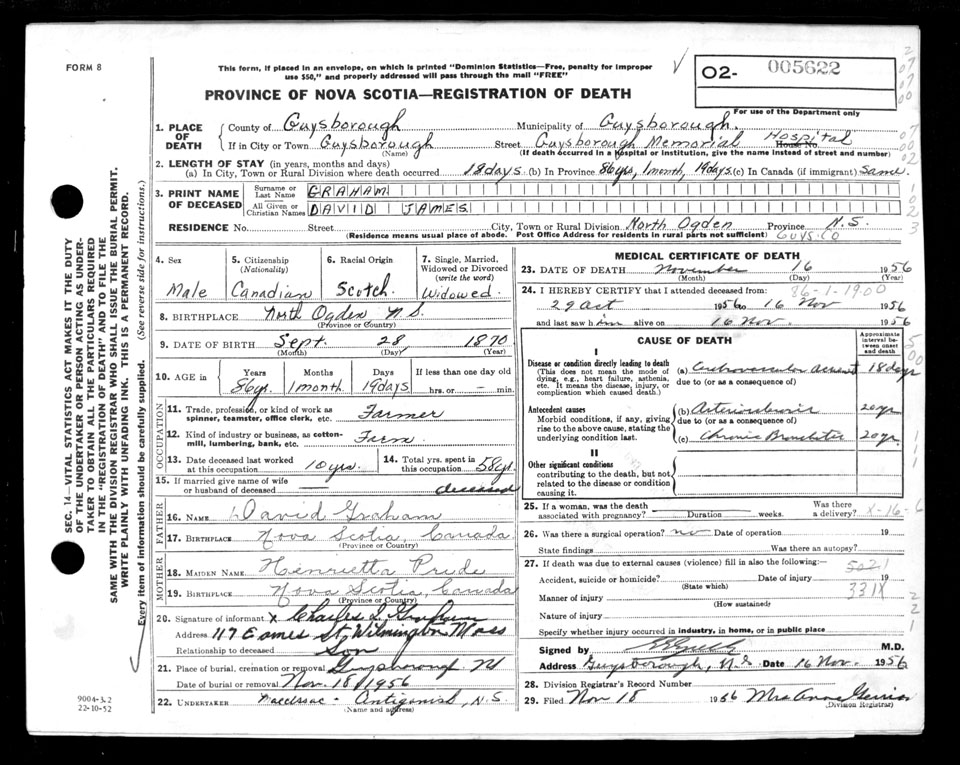 FORM 8
This form, if placed in an envelope, on which is printed "Dominion Statistics—Free, penalty for improper
use $50," and properly addressed will pass through the mail "FREE"
O2- 005622
For use of the Department only
PROVINCE OF NOVA SCOTIA—REGISTRATION OF DEATH
1. PLACE OF DEATH
County of Guysborough Municipality of Guysborough.
If in City or Town Guysborough Street Guysborough Memorial Hospital House No.
(Name) (If death occurred in a hospital or institution, give the name instead of street and number)
2. LENGTH OF STAY (in years, months and days)
(a) In City, Town or Rural Division where death occurred 18 days. (b) In Province 86 yrs, 1 month, 19 days. (c) In Canada (if immigrant) same.
3. PRINT NAME OF DECEASED
Surname or Last Name GRAHAM
All Given or Christian Names DAVID JAMES
RESIDENCE No. Street City, Town or Rural Division North Ogden Province N.S.
(Residence means usual place of abode. Post Office Address for residents in rural parts not sufficient) GUYS. CO
4. Sex
Male
5. Citizenship
(Nationality)
Canadian
6. Racial Origin
Scotch
7. Single, Married, Widowed or Divorced
(write the word)
Widowed
8. BIRTHPLACE North Ogden N.S.
(Province or Country)
9. DATE OF BIRTH Sept. 28, 1870
(Month) (Day) (Year)
10. AGE in Years Months Days If less than one day old
86 yrs. 1 month 19 days hrs. or — min.
OCCUPATION
11. Trade, profession, or kind of work as spinner, teamster, office clerk, etc. Farmer
12. Kind of industry or business, as cotton-mill, lumbering, bank, etc. Farm.
13. Date deceased last worked at this occupation 10 yrs.
14. Total yrs. spent in this occupation 58 yr.
15. If married give name of wife or husband of deceased — deceased
FATHER
16. NAME David Graham
17. BIRTHPLACE Nova Scotia, Canada
(Province or Country)
MOTHER
18. MAIDEN NAME Henrietta Pride
19. BIRTHPLACE Nova Scotia, Canada
(Province or Country)
20. Signature of informant x Charles L. Graham
Address 117 Eames St, Wilmington Mass
Relationship to deceased Son
21. Place of burial, cremation or removal Guysborough
Date of burial or removal Nov. 18/1956
22. UNDERTAKER MacIsaac - Antigonish, N.S.
(Name and address)
MEDICAL CERTIFICATE OF DEATH
23. DATE OF DEATH November 16 1956
(Month) (Day) (Year)
86-1-1900
24. I HEREBY CERTIFY that I attended deceased from:
29 Oct 1956 to 16 Nov 1956
and last saw him alive on 16 Nov. 1956
CAUSE OF DEATH
Approximate interval between onset and death
I
Disease or condition directly leading to death
(This does not mean the mode of dying, e.g., heart failure, asthenia, etc. It means the disease, injury, or complication which caused death.)
(a) Cerebrovascular Accident 18 days
due to (or as a consequence of)
Antecedent causes
Morbid conditions, if any, giving rise to the above cause, stating the underlying condition last.
(b) Arteriosclerosis 20 yr
due to (or as a consequence of)
(c) Chronic Bronchitis 20 yr.
II
Other significant conditions
contributing to the death, but not related to the disease or condition causing it.
25. If a woman, was the death associated with pregnancy? Duration weeks. Was there a delivery? X-16-6
26. Was there a surgical operation? no Date of operation 19
State findings Was there an autopsy?
27. If death was due to external causes (violence) fill in also the following:
5021
Accident, suicide or homicide? Date of injury 19
(State which)
331X
Manner of injury
(How sustained)
Nature of injury
Specify whether injury occurred in industry, in home, or in public place
Signed by M.D.
Address Guysborough, N.S. Date 16 Nov. 1956
28. Division Registrar's Record Number
29. Filed Nov 18 1956 Mrs Anna
(Division Registrar)
SEC. 14—VITAL STATISTICS ACT MAKES IT THE DUTY
OF THE UNDERTAKER OR PERSON ACTING AS UNDER-
TAKER TO OBTAIN ALL THE PARTICULARS REQUIRED
IN THE "REGISTRATION OF DEATH" AND TO FILE THE
SAME WITH THE DIVISION REGISTRAR WHO SHALL ISSUE THE BURIAL PERMIT.
WRITE PLAINLY WITH UNFADING INK. THIS IS A PERMANENT RECORD.
Every item of information should be carefully supplied. (See reverse side for instructions.)
9004-3.2
22-10-52